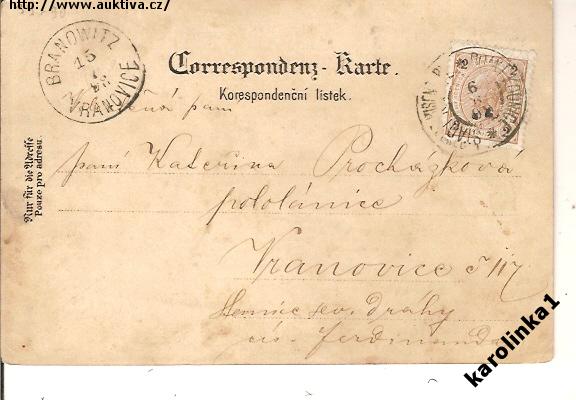 http://www.auktiva.cz/
BRANOWITZ
15
98
VRANOVICE
Correspondenz-Karte.
Korespondenční lístek.
Nur für die Adresse
Pouze pro adresu.
paní
paní Kateřina Procházková
pololánice
Vranovice č 117
stanice sev. dráhy
cís. Ferdinanda
karolinka1